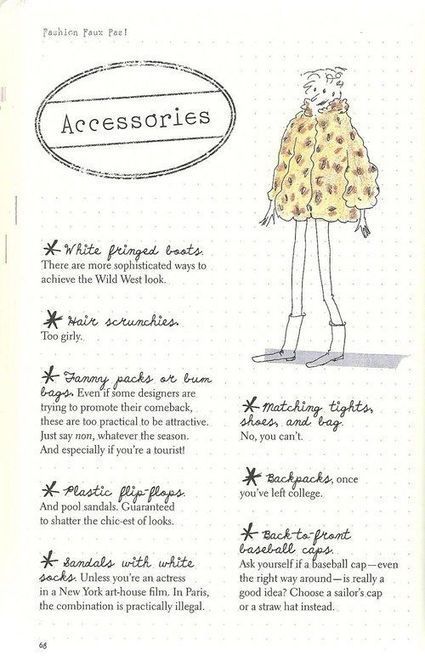 Fashion Faux Pas!
Accessories
* White fringed boots.
There are more sophisticated ways to
achieve the Wild West look.
* Hair scrunchies.
Too girly.
* Fanny packs or bum
bags. Even if some designers are
trying to promote their comeback,
these are too practical to be attractive.
Just say non, whatever the season.
And especially if you're a tourist!
* Plastic flip-flops.
And pool sandals. Guaranteed
to shatter the chic-est of looks.
* Sandals with white
socks. Unless you're an actress
in a New York art-house film. In Paris,
the combination is practically illegal.
* Matching tights,
shoes, and bag.
No, you can't.
* Backpacks, once
you've left college.
* Back-to-front
baseball caps.
Ask yourself if a baseball cap—even
the right way around—is really a
good idea? Choose a sailor's cap
or a straw hat instead.
68